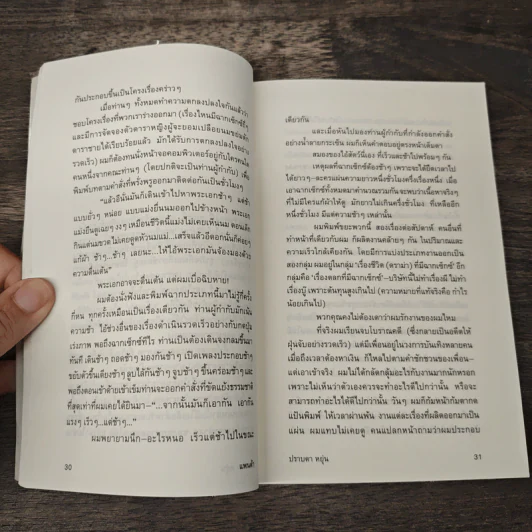 กันประกอบขึ้นเป็นโครงเรื่องคร่าวๆ
เมื่อท่านๆ ทั้งหมดทำความตกลงปลงใจกันแล้วว่า
ชอบโครงเรื่องที่พวกเราร่างออกมา (เรื่องไหนมีฉากเซ็กซ์ถี่ๆ
และมีการจัดจองตัวดาราหญิงผู้จะยอมเปลือยนมชอนลึก
ดาราชายได้เรียบร้อยแล้ว มักได้รับการตกลงปลงใจอย่าง
รวดเร็ว) ผมก็ต้องนั่งหน้าจอคอมพิวเตอร์อยู่กับใครคนใด
คนหนึ่งจากคณะท่านๆ (โดยปกติจะเป็นท่านผู้กำกับ) เพื่อ
พิมพ์บทตามคำสั่งที่พรั่งพรูออกมาติดต่อกันเป็นชั่วโมงๆ
"แล้วอีนั่นมันก็เดินเข้าไปหาพระเอกช้าๆ แต่ช้า
แบบยั่วๆ หน่อย แบบแม่งยื่นนมออกไปข้างหน้า พระเอก
แม่งยืนดูเฉยๆ งงๆ เหมือนชีวิตนี้แม่งไม่เคยเห็นนม ตอนเด็ก
กินแต่นมขวด ไม่เคยดูดหัวนมแม่...เสร็จแล้วอีดอกนั่นก็ค่อยๆ
แก้ผ้า ช้าๆ...ช้าๆ เลยนะ...ให้ไอ้พระเอกมันจ้องมองด้วย
ความตื่นต้น"
พระเอกอาจจะตื่นเต้น แต่ผมเบื่อฉิบหาย!
ผมต้องนั่งฟังและพิมพ์ฉากประเภทนี้มาไม่รู้กี่ครั้ง
กี่หน ทุกครั้งเหมือนเป็นเรื่องเดียวกัน ท่านผู้กำกับมักเน้น
ความช้า ไอ้ช่วงอื่นของเรื่องดำเนินรวดเร็วอย่างกับกดปุ่ม
เร่งภาพ พอถึงฉากเซ็กซ์ทีไร ท่านเป็นต้องเดินจงกลมขึ้นมา
ทันที เดินช้าๆ ถอดช้าๆ มองกันช้าๆ เปิดเพลงประกอบช้าๆ
ขยับตัวขึ้นเตียงช้าๆ ลูบไล้กันช้าๆ จูบช้าๆ ขึ้นคร่อมช้าๆ และ
พอถึงตอนเข้าด้ายเข้าเข็มท่านจะออกคำสั่งที่ขัดแย้งธรรมชาติ
ที่สุดเท่าที่ผมเคยได้ยินมา–"...จากนั้นมันก็เอากัน เอากัน
แรงๆ เร็วๆ...แต่ช้าๆ..."
ผมพยายามนึก–อะไรหนอ เร็วแต่ช้าไปในขณะ
30 แพนด้า
เดียวกัน
และเมื่อหันไปมองท่านผู้กำกับที่กำลังออกคำสั่ง
อย่างน้ำลายกระเซ็น ผมก็เห็นคำตอบอยู่ตรงหน้าเต็มตา
สมองของไอ้สัตว์นี่เอง ที่เร็วและช้าไปพร้อมๆ กัน
เหตุผลที่ฉากเซ็กซ์ต้องช้าๆ เพราะจะได้ยืดเวลาไป
ได้ยาวๆ–ละครแผ่นความยาวหนึ่งชั่วโมงครึ่งเรื่องหนึ่ง เมื่อ
เอาฉากเซ็กซ์ทั้งหมดมาคำนวณรวมกันจะพบว่าเนื้อหาจริงๆ
ที่ไม่มีใครแก้ผ้าให้ดู มักยาวไม่เกินครึ่งชั่วโมง ที่เหลืออีก
หนึ่งชั่วโมง มีแต่ความช้าๆ เหล่านั้น
ผมพิมพ์ขยะพวกนี้ สองเรื่องต่อสัปดาห์ คนอื่นที่
ทำหน้าที่เดียวกับผม ก็ผลิตงานคล้ายๆ กัน ในปริมาณและ
ความเร็วใกล้เคียงกัน โดยมีการแบ่งประเภทงานออกเป็น
สองกลุ่ม ผมอยู่ในกลุ่ม 'เรื่องชีวิต (ดราม่า) ที่มีฉากเซ็กซ์' อีก
กลุ่มคือ 'เรื่องตลกที่มีฉากเซ็กซ์'–บริษัทนี้ไม่ทำเรื่องผี ไม่ทำ
เรื่องบู๊ เพราะต้นทุนสูงเกินไป (ความหมายที่แท้จริงคือ กำไร
น้อยเกินไป)
พวกคุณคงไม่ต้องเดาว่าผมรักงานของผมไหม
ที่จริงผมเรียนจบโบราณคดี (ซึ่งกลายเป็นอดีตให้
ฝุ่นจับอย่างรวดเร็ว) แต่มีเพื่อนอยู่ในวงการบันเทิงหลายคน
เมื่อถึงเวลาต้องหาเงิน ก็ไหลไปตามคำชักชวนของเพื่อน–
แต่เอาเข้าจริง ผมไม่ได้กลัดกลุ้มอะไรกับงานมากนักหรอก
เพราะไม่เห็นว่าตัวเองควรจะทำอะไรดีไปกว่านั้น หรือจะ
สามารถทำอะไรได้ดีไปกว่านั้น วันๆ ผมก็ก้มหน้าก้มตากด
แป้นพิมพ์ ให้เวลาผ่านพ้น งานแต่ละเรื่องที่ผลิตออกมาเป็น
แผ่น ผมแทบไม่เคยดู คนแปลกหน้าถามว่าผมประกอบ
ปราบดา หยุ่น 31